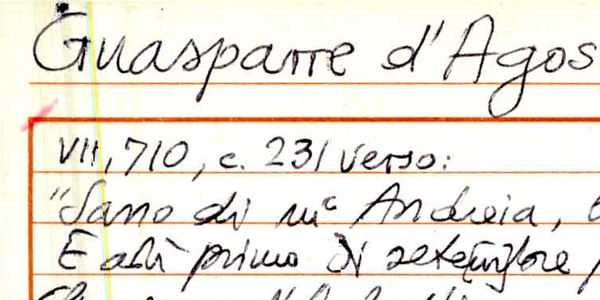 Guasparre d'Agos
VII, 710, c. 231 verso:
"Sano di mº Andreia,
E adì primo di setenbre